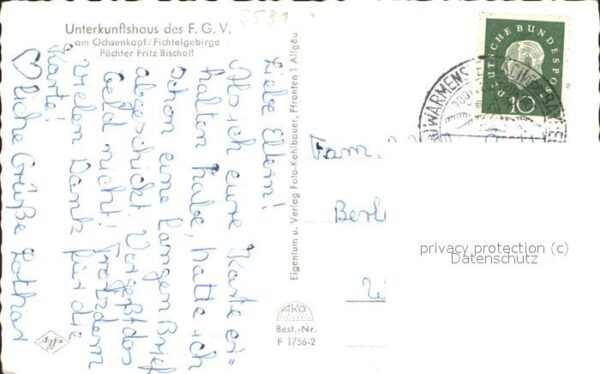 5531
Unterkunftshaus des F. G. V.
am Ochsenkopf/Fichtelgebirge
Pächter Fritz Bischoff
Liebe Eltern!
Als ich eure Karte er=
halten habe, hatte ich
schon eine langen Brief
abgeschickt. Vergeßt das
Geld nicht! Trotzdem
vielen Dank für die
Karte!
♡liche Grüße Lothar
Eigentum u. Verlag Foto-Kohlbauer, Pfronten i. Allgäu
AKO
Best.-Nr.
F 1756-2
DEUTSCHE BUNDESPOST
10
WARMENS
Fam.
Berl
privacy protection (c)
Datenschutz